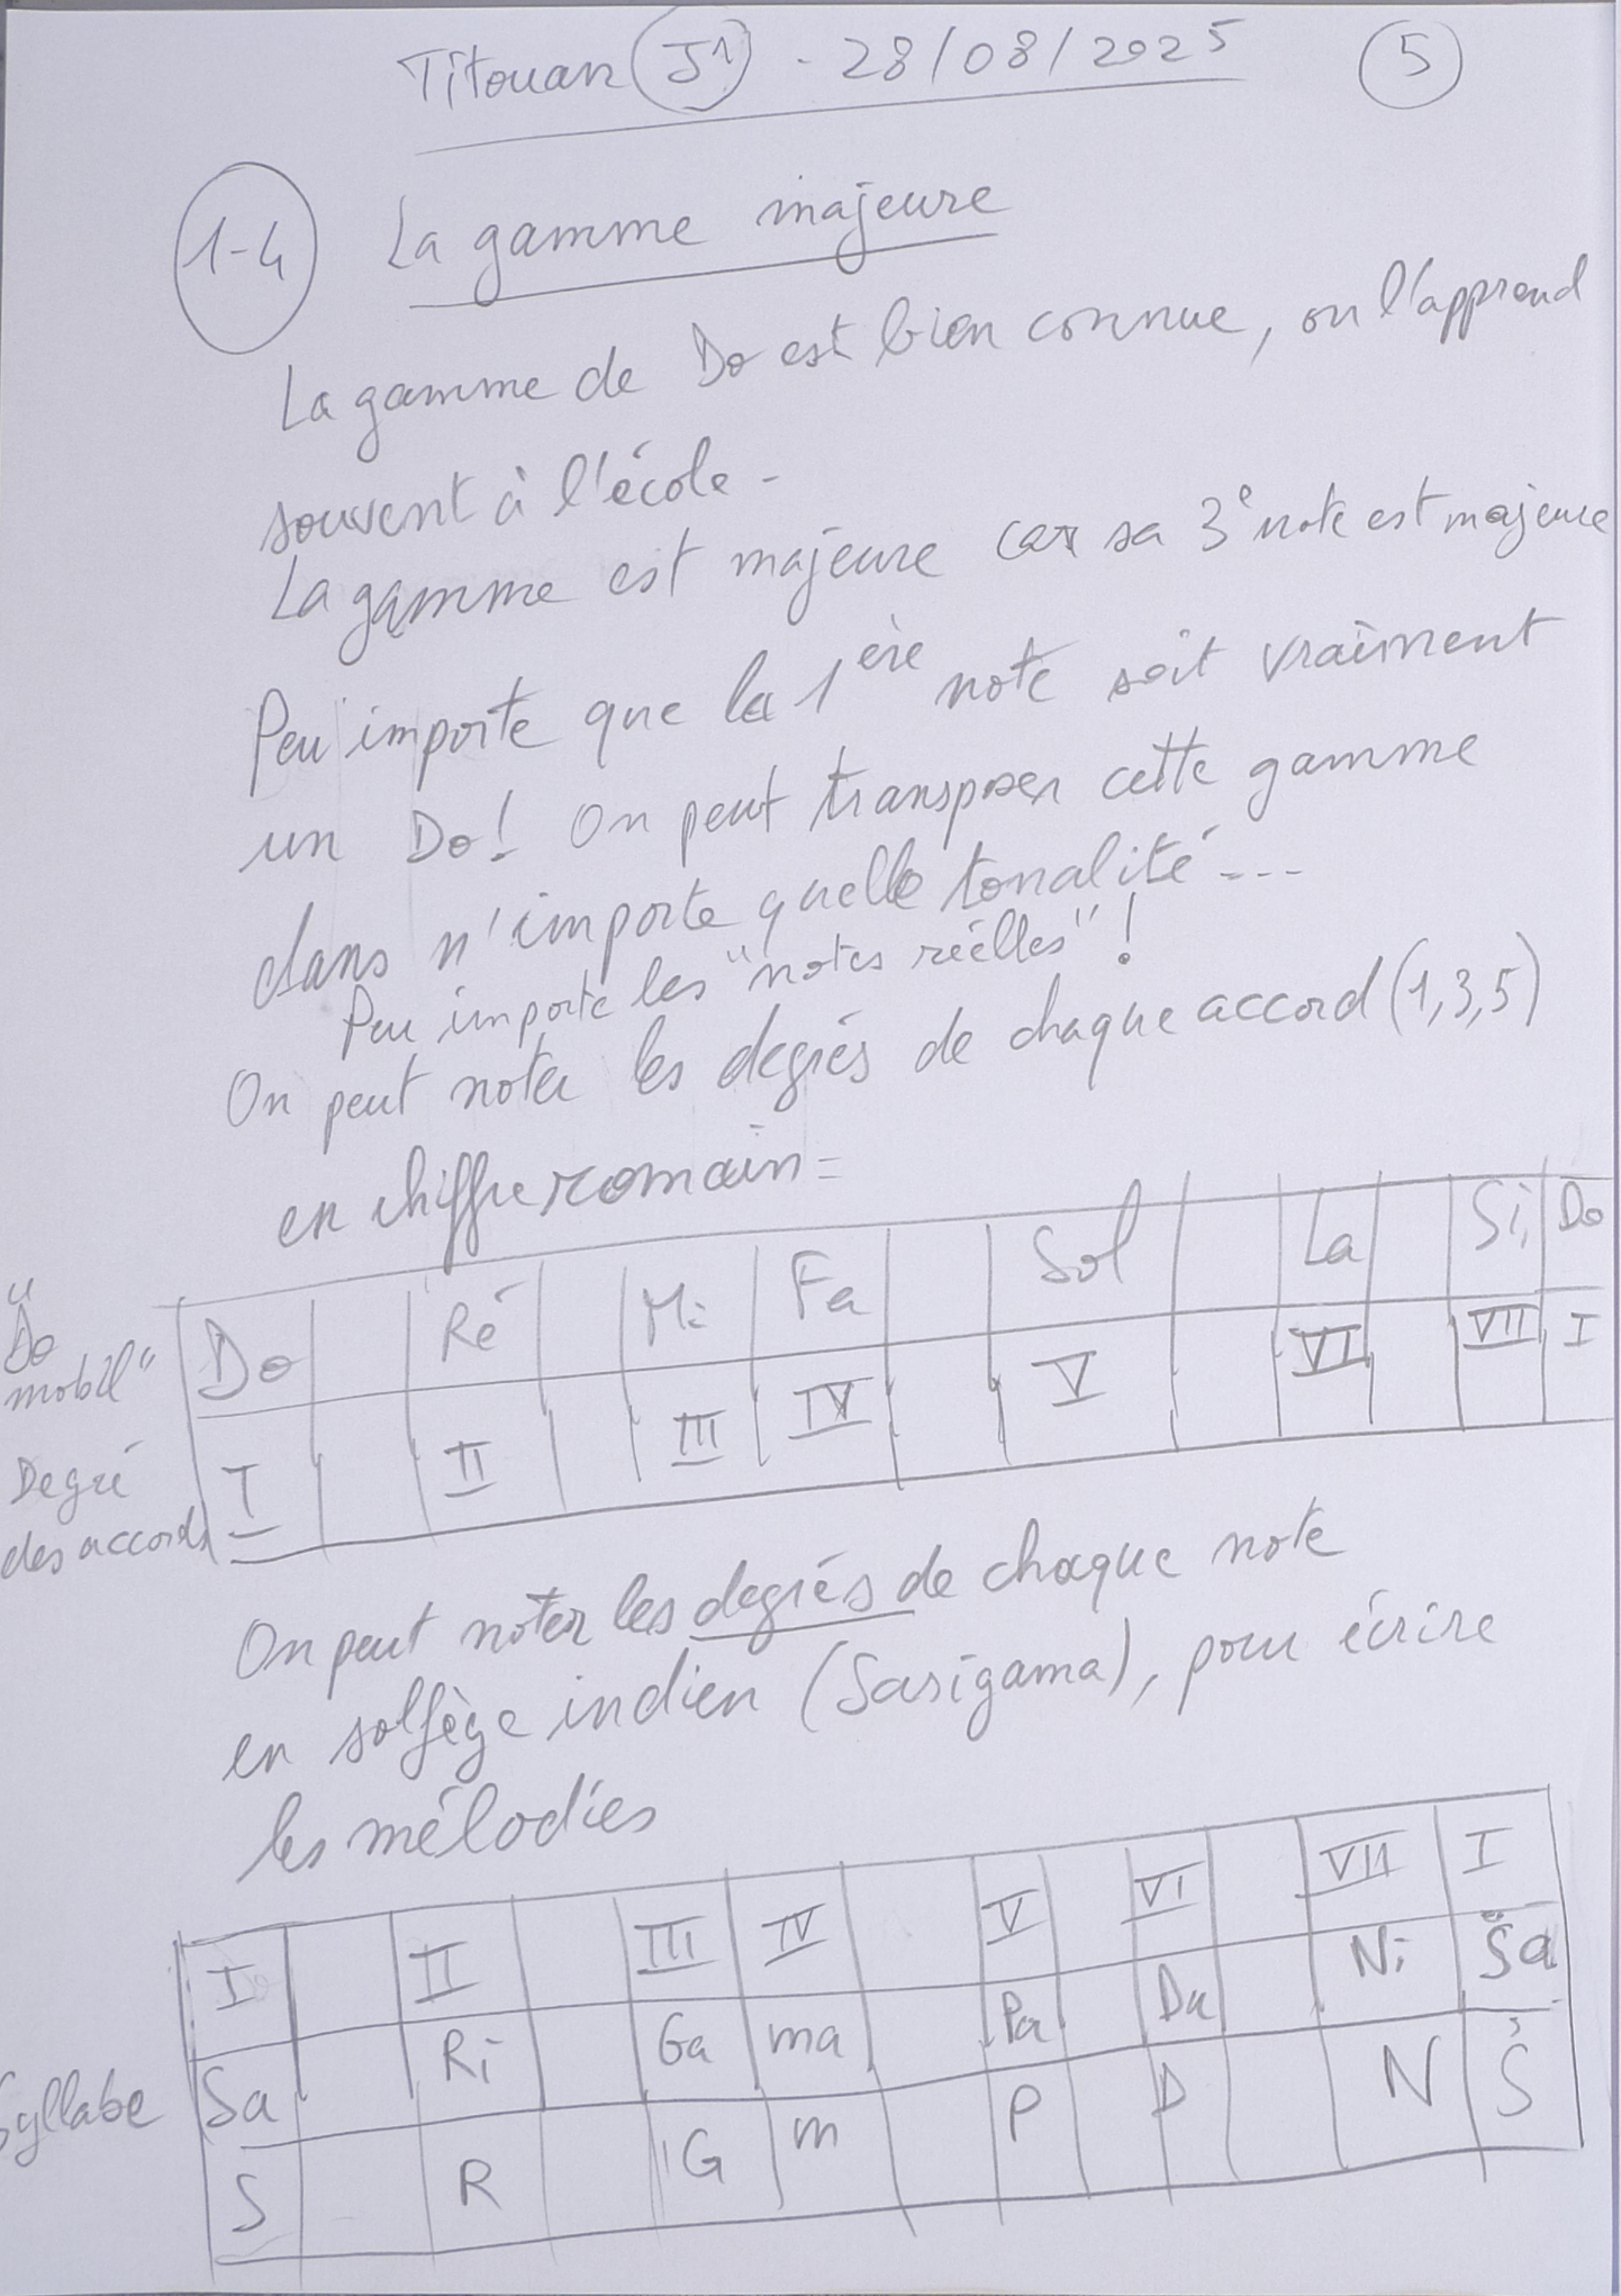 Titouan J1 - 28/08/2025 5
1-4 La gamme majeure
La gamme de Do est bien connue, on l'apprend
souvent à l'école -
La gamme est majeure car sa 3e note est majeure
Peu importe que la 1ère note soit vraiment
un Do! On peut transposer cette gamme
dans n'importe quelle tonalité ---
Peu importe les "notes réelles" !
On peut noter les degrés de chaque accord (1,3,5)
en chiffre romain =
"Do mobil" Do Ré Mi Fa Sol La Si Do
Degré des accords I II III IV V VI VII I
On peut noter les degrés de chaque note
en solfège indien (Sarigama), pour écrire
les mélodies
I II III IV V VI VII I
Syllabe Sa Ri Ga ma Pa Da Ni Ṡa
S R G m P D N Ṡ